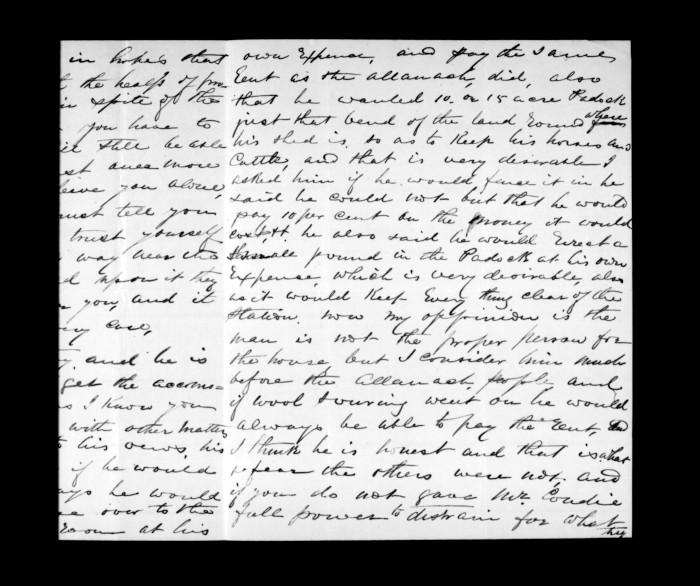 in hopes that
the health of you
in spite of the
you have to
still be able
just once more
leave you alone,
must tell you
trust yourself
way near the
upon it they
you, and it
very care,
and he is
get the accoms=
as I know you
with other matters
to his views, his
if he would
ways he would
over to the
Room at his
own Expense, and pay the same
Rent as the Allanach, did, also
that he wanted 10. or 15 acre Padock
just that bend of the land round where
his shed is, so as to Keep his horses and
Cattle, and that is very desirable I
asked him if he would fence it in he
said he could not but that he would
pay 10 per cent on the money it would
cost. he also said he would Erect a
small pound in the Padock at his own
Expense, which is very desirable, also
as it would Keep Every thing clear of the
Station. now my oppinion is the
man is not the proper person for
the house, but I consider him much
before the Allanach, people, and
if wool Scouring went on he would
always be able to pay the Rent,
I think he is honest and that is what
I fear the others were not, and
if you do not gave Mr. Condie
full power to distrain for what
they